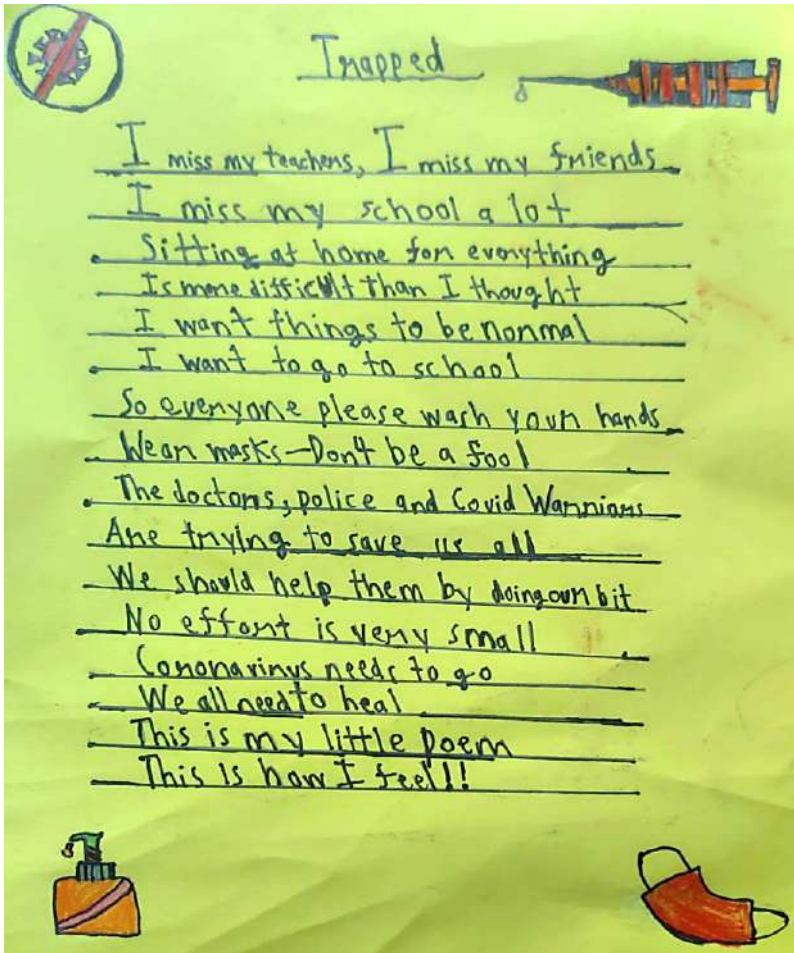 Trapped
I miss my teachers, I miss my friends
I miss my school a lot
Sitting at home for everything
Is more difficult than I thought
I want things to be normal
I want to go to school
So everyone please wash your hands
Wear masks-Don't be a fool
The doctors, police and Covid Warriors
Are trying to save us all
We should help them by doing our bit
No effort is very small
Coronavirus needs to go
We all need to heal
This is my little poem
This is how I feel!!